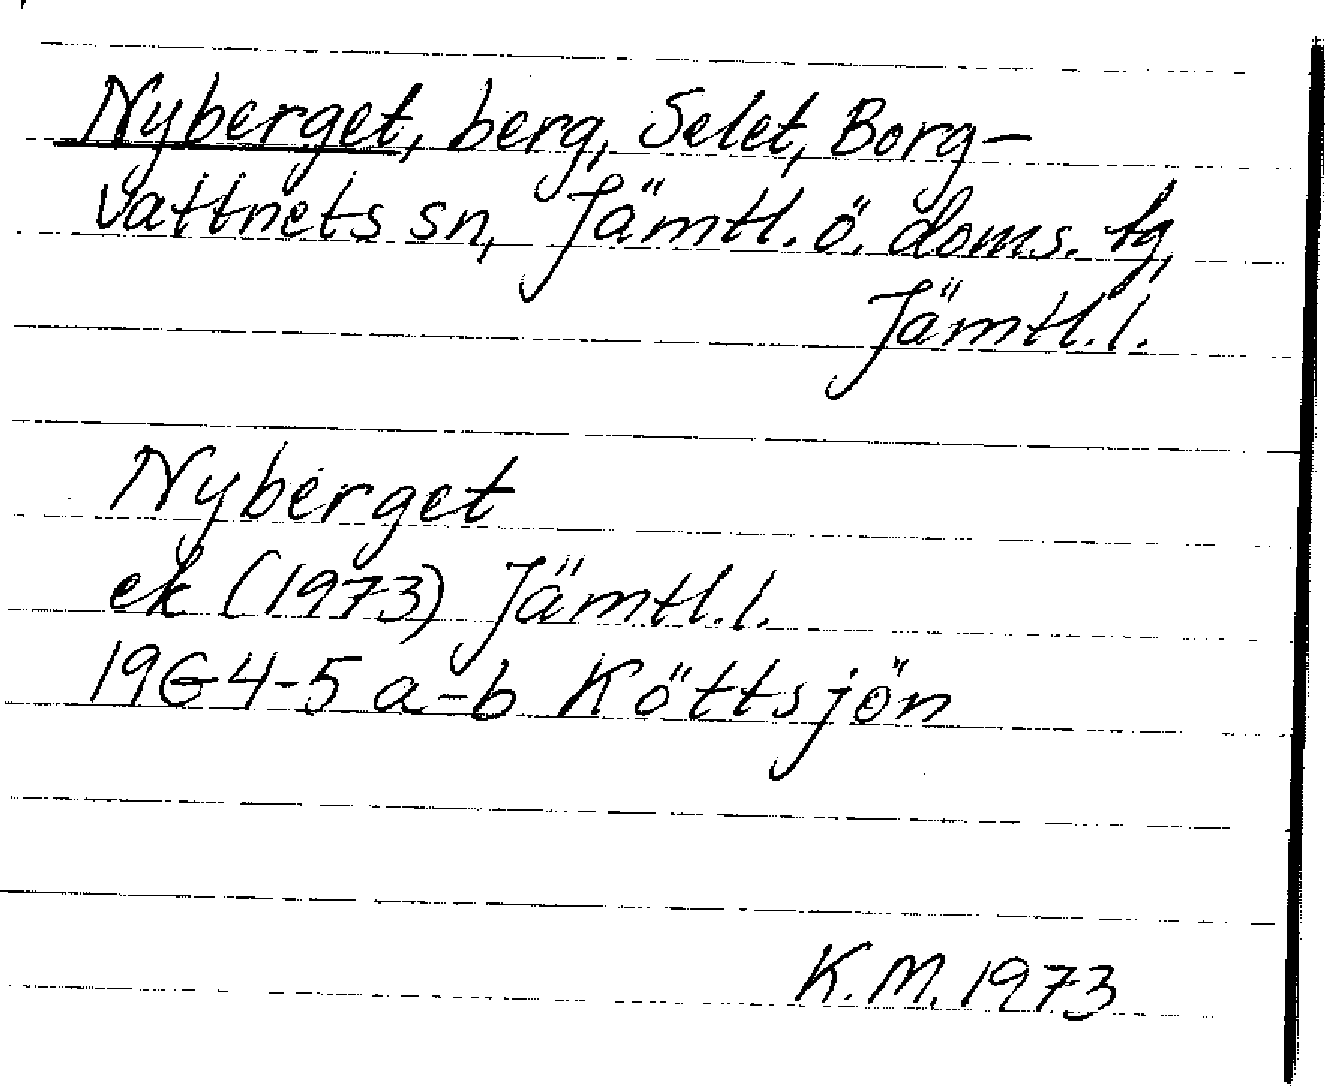 Nyberget, berg, Selet, Borg-
vattnets sn, Jämtl. ö. doms. tg,
Jämtl. l.
Nyberget
ek (1973) Jämtl. l.
19G4-5 a-b Köttsjön
K.M. 1973